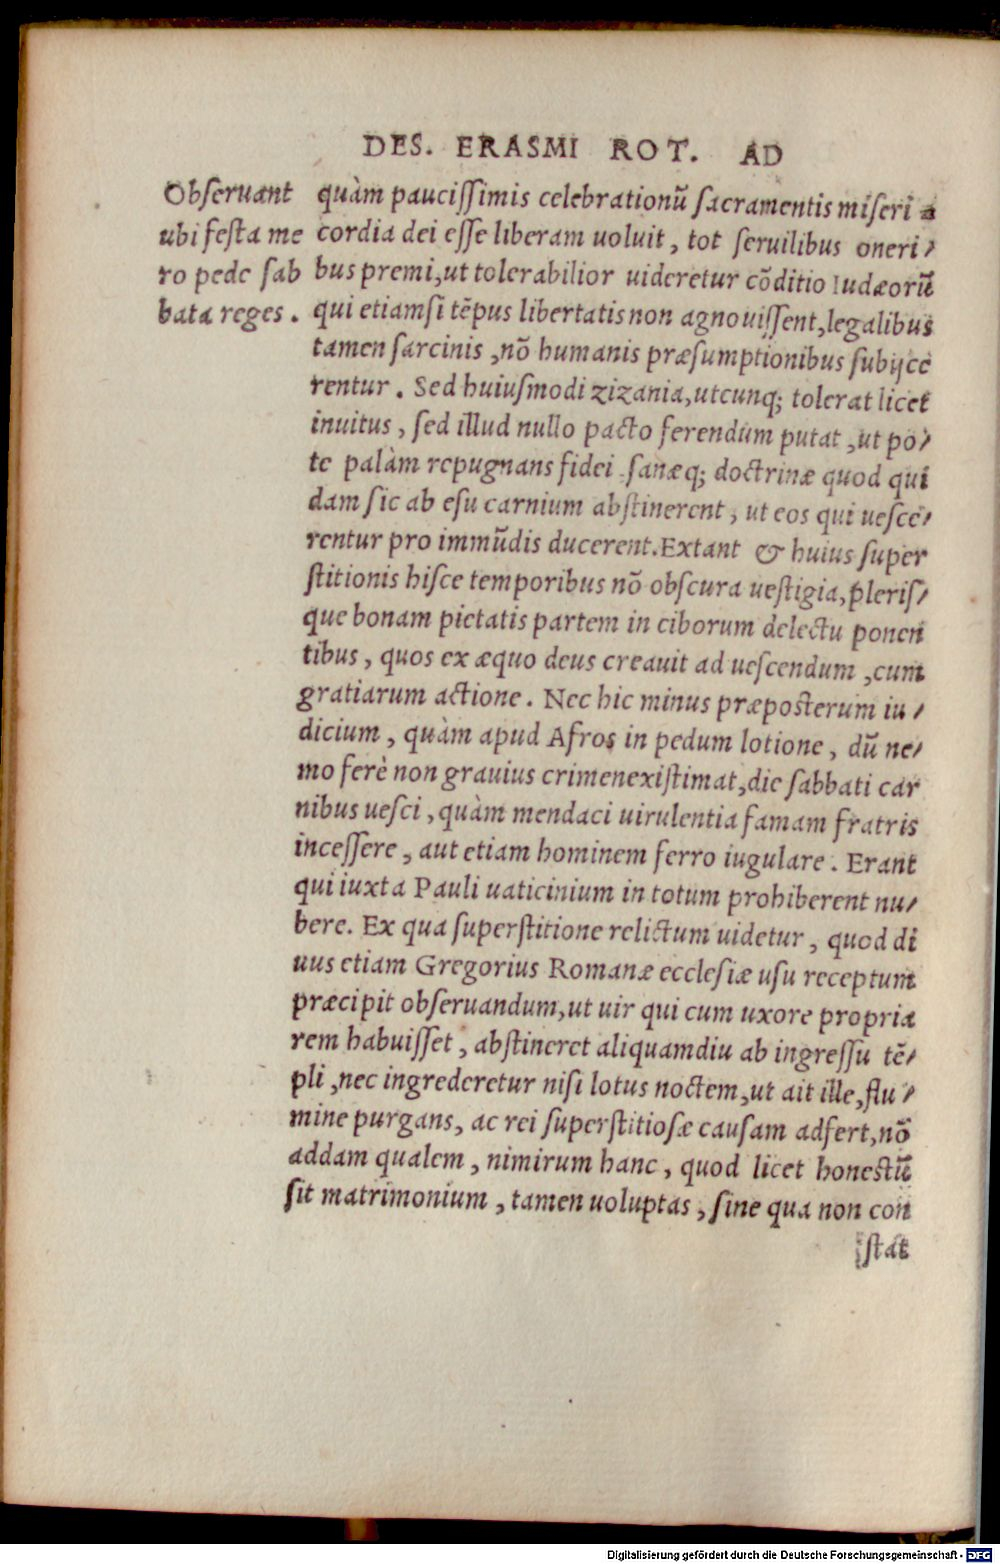 DES. ERASMI ROT. AD
Obſeruant
ubi feſta me
ro pede ſab
bata reges.
quàm pauciſſimis celebrationũ ſacramentis miſeri⸗
cordia dei eſſe liberam uoluit, tot ſeruilibus oneri⸗
bus premi, ut tolerabilior uideretur cõditio Iudæorũ
qui etiamſi tẽpus libertatis non agnouiſſent, legalibus
tamen ſarcinis, nõ humanis præſumptionibus ſubijce
rentur. Sed huiuſmodi zizania, utcunq; tolerat licet
inuitus, ſed illud nullo pacto ferendum putat, ut po⸗
te palàm repugnans fidei ſanæq; doctrinæ quod qui
dam ſic ab eſu carnium abſtinerent, ut eos qui ueſce⸗
rentur pro immũdis ducerent. Extant & huius ſuper
ſtitionis hiſce temporibus nõ obſcura ueſtigia, pleriſ⸗
que bonam pietatis partem in ciborum delectu ponen
tibus, quos ex æquo deus creauit ad ueſcendum, cum
gratiarum actione. Nec hic minus præpoſterum iu⸗
dicium, quàm apud Afros in pedum lotione, dũ ne⸗
mo ferè non grauius crimen exiſtimat, die ſabbati car
nibus ueſci, quàm mendaci uirulentia famam fratris
inceſſere, aut etiam hominem ferro iugulare. Erant
qui iuxta Pauli uaticinium in totum prohiberent nu⸗
bere. Ex qua ſuperſtitione relictum uidetur, quod di
uus etiam Gregorius Romanæ eccleſiæ uſu receptum
præcipit obſeruandum, ut uir qui cum uxore propria
rem habuiſſet, abſtineret aliquamdiu ab ingreſſu tẽ⸗
pli, nec ingrederetur niſi lotus noctem, ut ait ille, flu⸗
mine purgans, ac rei ſuperſtitioſæ cauſam adfert, nõ
addam qualem, nimirum hanc, quod licet honeſtũ
ſit matrimonium, tamen uoluptas, ſine qua non con
ſtat
Digitalisierung gefördert durch die Deutsche Forschungsgemeinschaft - DFG